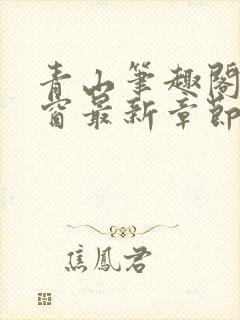 青山筆趣閣
窗最新章節
焦鳳君